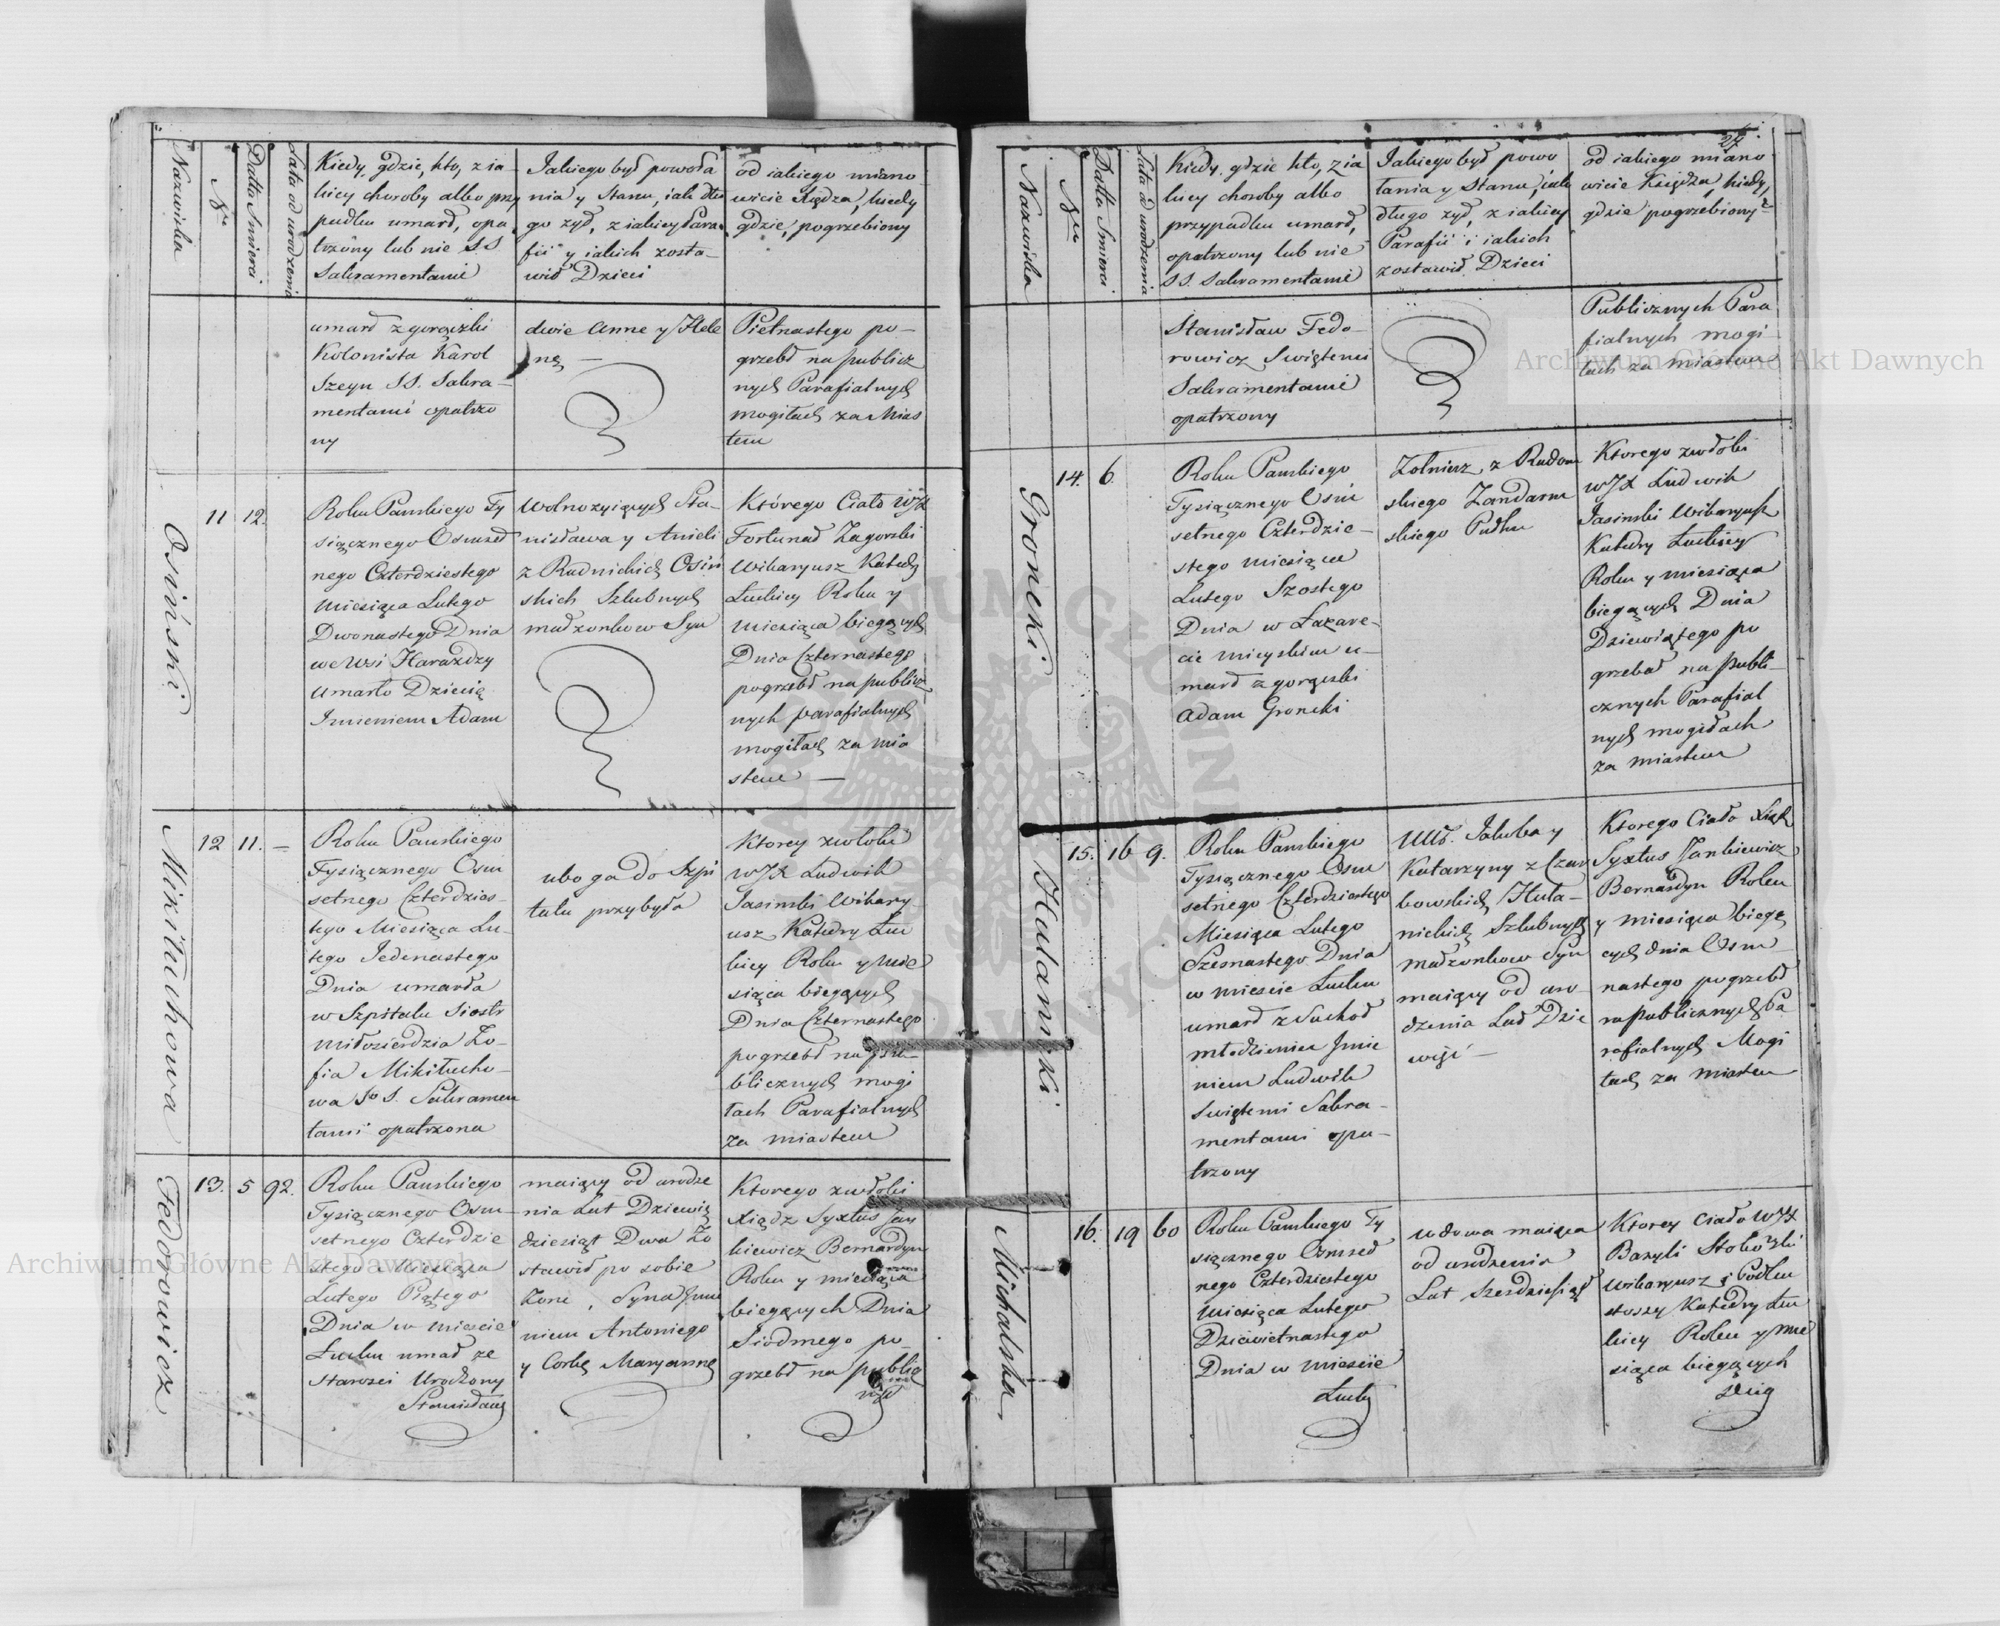 Nazwiska
Nru
Datta Smierci
Lata od urodzenia
Kiedy, gdzie, kto, z ia-
kiey choroby albo przy
padku umarł, opa
trzony lub nie S.S
Sakramentami
Jakiego był powoła
nia y Stanu, iak dłu
go żył, z iakiey Para
fii y iakich zosta-
wił Dzieci
od iakiego miano
wicie Xiędza, kiedy
gdzie, pogrzebiony
umarł z gorączki
Kolonista Karol
Szeyn SS. Sakra-
mentami opatrzo
ny
dwie Anne y Hele
nę —
Pietnastego po-
grzebł na publicz
nych Parafialnych
mogiłach za Mias
tem
Osiński
11
12.
Roku Pańskiego Ty
siącznego Osmset
nego Czterdziestego
Miesiąca Lutego
Dwonastego Dnia
we Wsi Harazdzy
Umarło Dziecię
Imieniem Adam
Wolnożyiących Sta-
nisława y Anieli
z Rudnickich Osiń
skich Szlubnych
małżonkow Syn
Którego Ciało WJX
Fortunad Zagorski
Wikaryusz Katedy
Łuckiey Roku y
Miesiąca bieących
Dnia Czternastego
pogrzebł na publicz
nych parafialnych
mogiłach za mia
stem —
Mikituchowa
12
11.
—
Roku Pańskiego
Tysiącznego Osm
setnego Czterdzies-
tego Miesiąca Lu-
tego Jedenastego
Dnia umarła
w Szpitalu Siostr
Miłosierdzia Zo-
fia Mikitucho-
wa SS. Sakramen
tami opatrzona
uboga do Szpi
talu przybyła
Ktorey zwłoki
WJX Ludwik
Jasinski Wikary
usz Katedry Łu
kiey Roku y Mie
siąca biegących
Dnia Czternastego
pogrzebł na pu-
blicznych mogi
łach Parafialnych
za miastem
Fedorowicz
13.
5
92.
Roku Pańskiego
Tysiącznego Osm-
setnego Czterdzie
stego Miesiąca
Lutego Piątego
Dnia w Miescie
Łucku umarł ze
starosci Urodzony
Stanisław
maiący od urodze
nia Lat Dziewię
dziesiąt Dwa Zo
stawił po sobie
Zone, Syna Jmie
niem Antoniego
y Corkę Maryannę
Ktorego zwłoki
Xiądz Syxtus Jan
kiewicz Bernardyn
Roku y miesiąca
biegących Dnia
Siódmego po-
grzebł na public
nych
27.
Nazwiska
Nru
Datta Smierci
Lata od urodzenia
Kiedy, gdzie kto, z ia
kiey choroby albo
przypadku umarł,
opatrzony lub nie
SS. Sakramentami
Jakiego był powo
łania y Stanu, iak
długo żył, z iakiey
Parafii i iakich
zostawił Dzieci
od iakiego miano-
wicie Xiędza, kiedy,
gdzie pogrzebiony
Stanisław Fedo-
rowicz Swiętemi
Sakramentami
opatrzony
Publicznych Para
fialnych mogi-
łach za miastem
Groncki
14.
6
Roku Panskiego
Tysiącznego Osm
setnego Czterdzie-
stego Miesiąca
Lutego Szostego
Dnia w Lazare-
cie mieyskim u-
marł z gorączki
Adam Groncki
Zolnierz z Radom
skiego Zandarm
skiego Pułku
Ktorego zwłoki
WJX Ludwik
Jasinski Wikaryusz
Katedry Łuckiey
Roku y miesiąca
biegących Dnia
Dziewiątego po
grzebał na publi-
cznych Parafial
nych mogiłach
za miastem
Hulanicki
15.
16
9.
Roku Panskiego
Tysiącznego Osm
setnego Czterdziestego
Miesiąca Lutego
Szesnastego Dnia
w Miescie Łucku
umarł z Suchot
młodzieniec Jmie
niem Ludwik
Swiętemi Sakra-
mentami opa-
trzony
Jakuba y
Katarzyny z Czar
kowskich Hula-
nickich Szlubnych
Małżonkow Syn
maiący od uro-
dzenia Lat Dzie
więć —
Ktorego Ciało Xiądz
Syxtus Jankiewicz
Bernardyn Roku
y miesiąca bieżą
cych dnia Osm-
nastego pogrzebł
na publicznych Pa
rafialnych Mogi
łach za miastem
Michalska.
16.
19
60
Roku Panskiego Ty
siącznego Osmset
nego Czterdziestego
Miesiąca Lutego
Dziewietnastego
Dnia w miescie
Łucku
wdowa maiąca
od urodzenia
Lat Szesdziesiąt
Ktorey Ciało WJX
Bazyli
Wikaryusz i Podku
stoszy Katedry Łu
kiey Roku y mie
siąca biegących
Archiwum Główne Akt Dawnych
Archiwum Główne Akt Dawnych